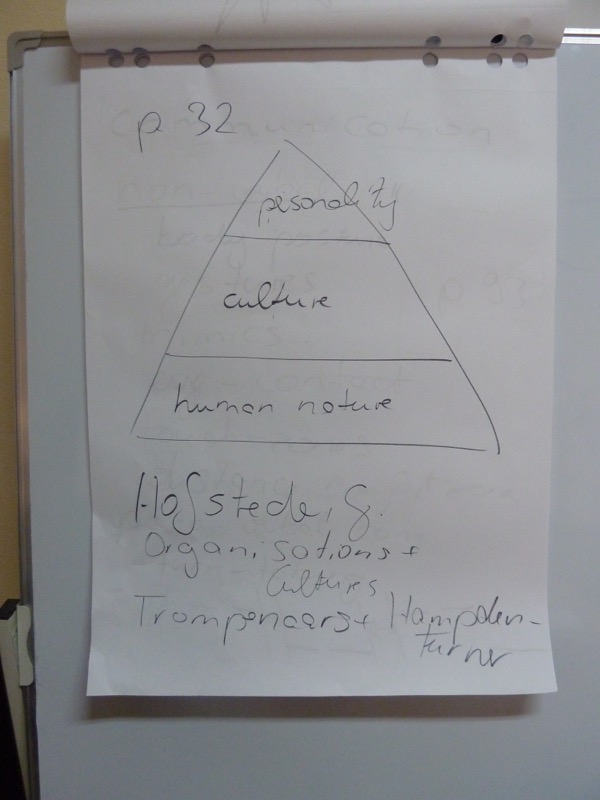 p 32
pesonality
culture
human nature
Hofstede, G.
Organisations +
Cultures
Trompenaars + Hampden-
turner